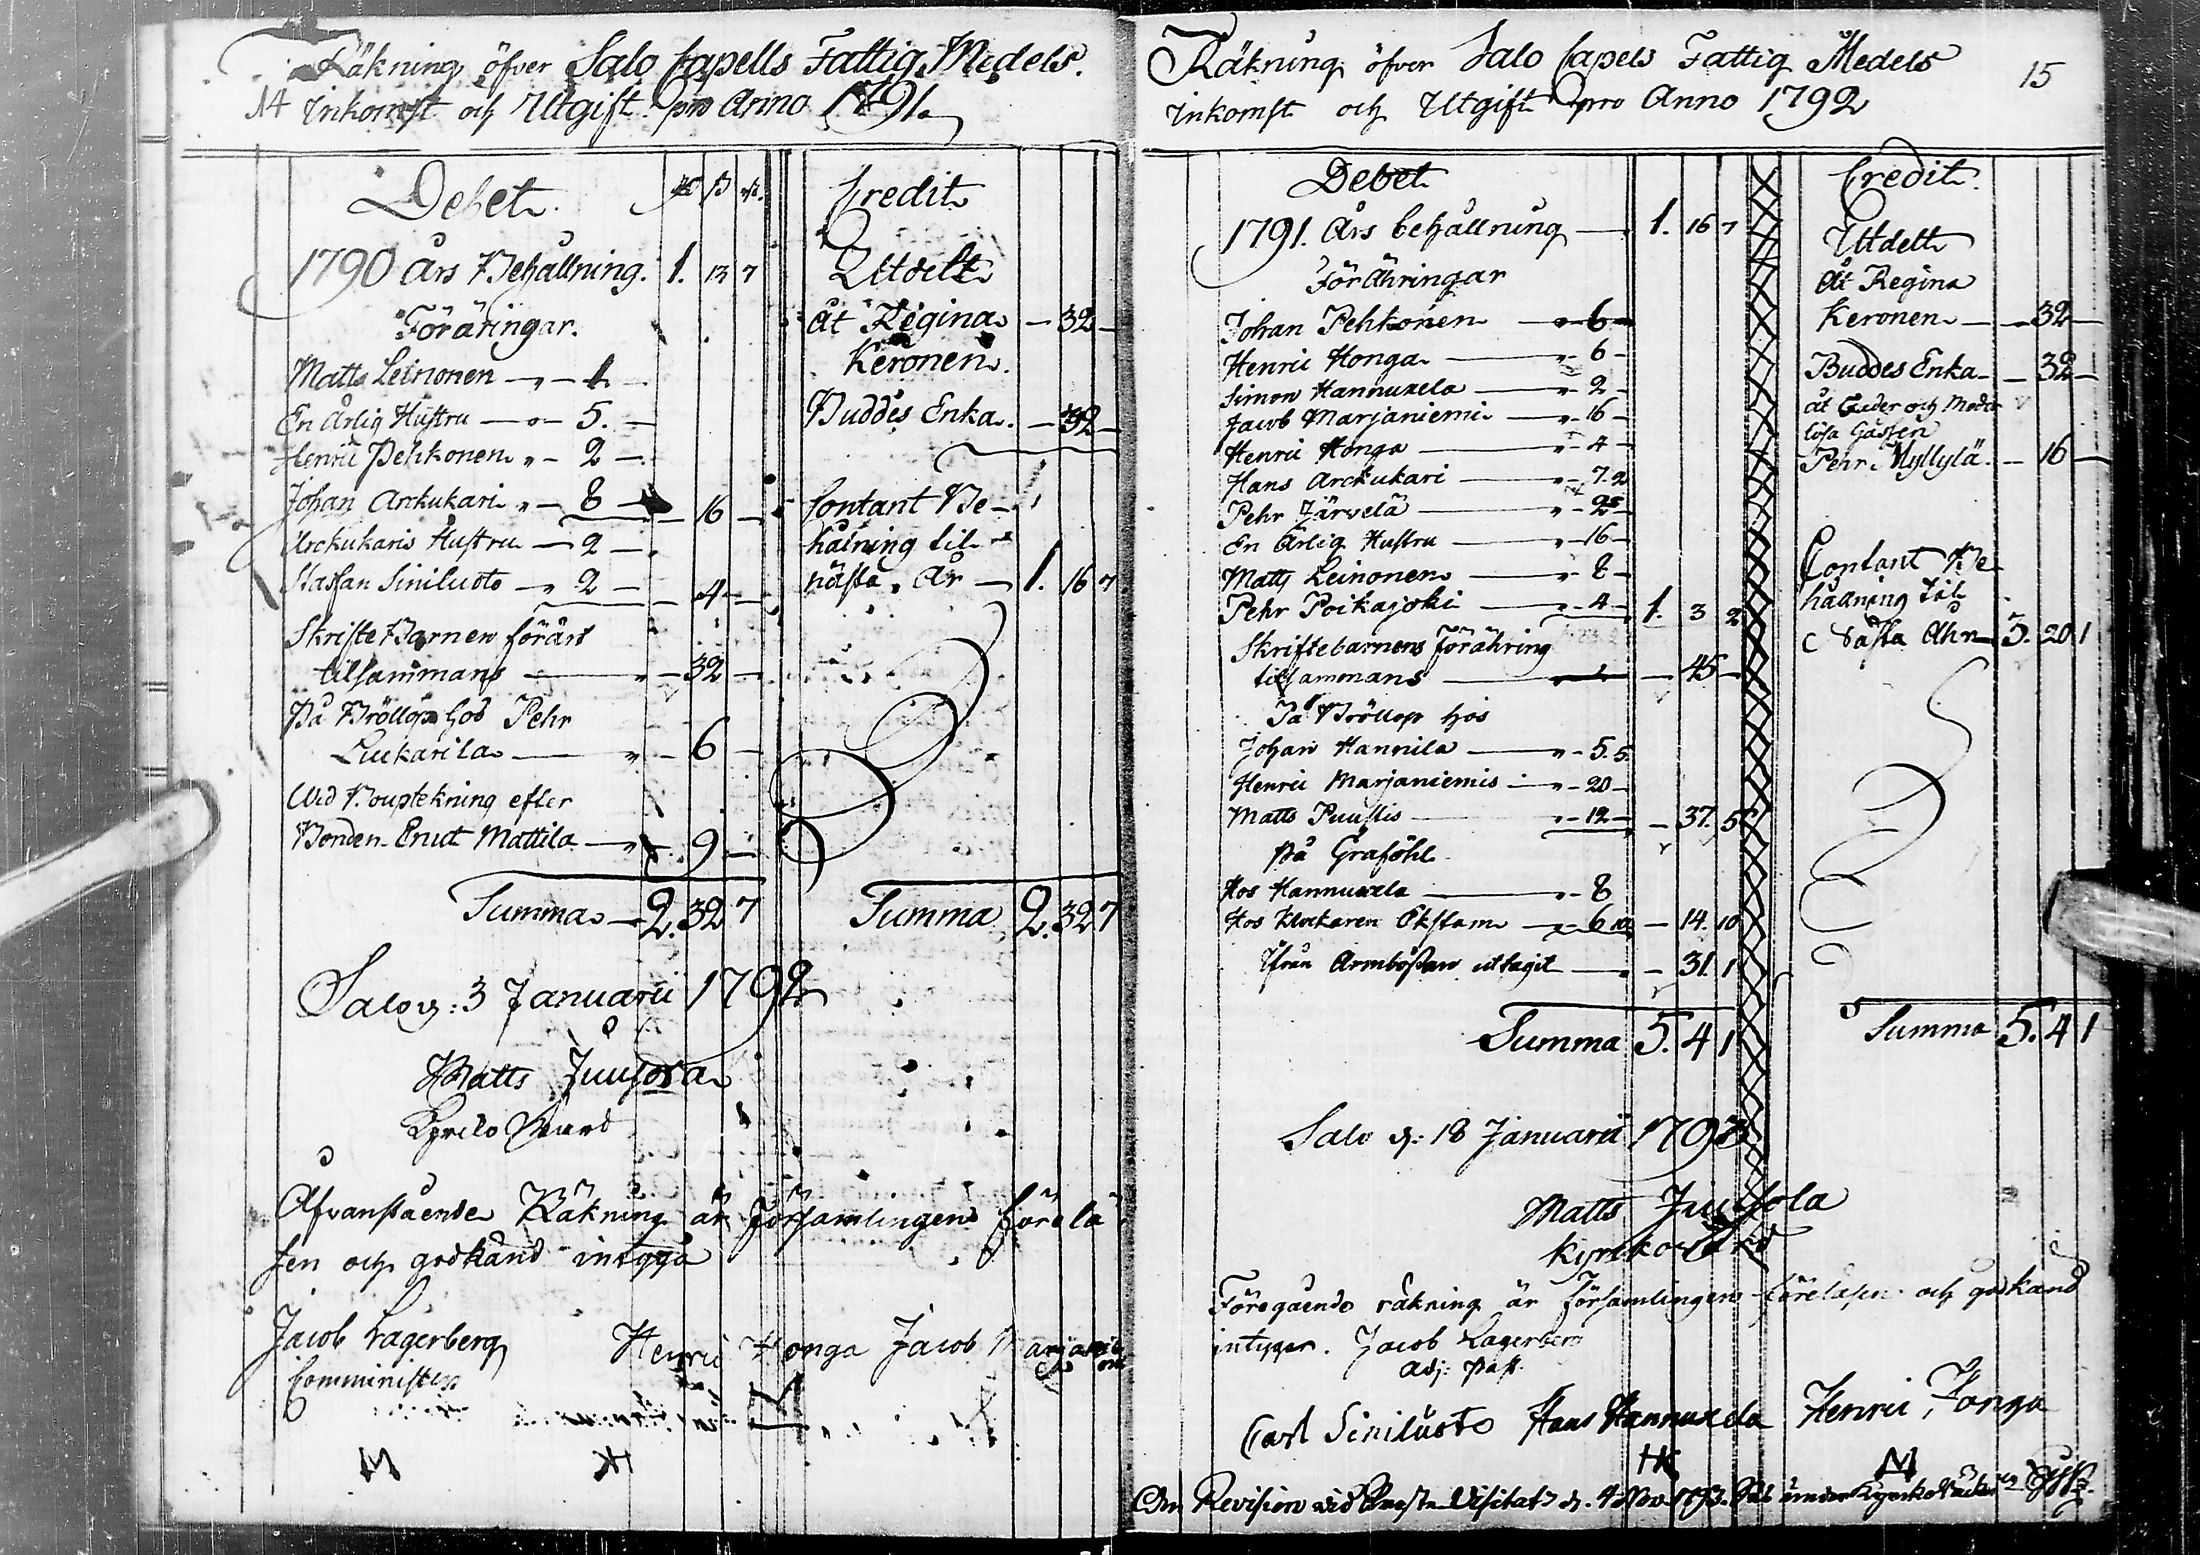 Räkning öfver Salo Capells Fattig Medels.
14 Inkomst och Utgift pro Anno 1791.
Debet.
1790 Års Behållning. 1. 13 7
Föräringar.
Matts Leinonen — " — 4 —
En Ärlig Hustru — " — 5. —
Henric Pehkonen " — 2 —
Johan Arckukari " — 8 — — 16 —
Arckukaris Hustru — 2 —
Staffan Siniluoto — " 2 — — 4 —
Skrifte Barnen förärt
tilsammans — " — 32 —
På Bröllop hos Pehr
Luukarila — " — 6 —
Wid Bouptekning efter
Bonden Enut Mattila — " — 9 —
Summa — 2. 32 7
Credit
Utdelt
åt Regina — 32 —
Keronen.
Buddes Enka. — 32 —
Contant Be-
hålning til
nästa År — 1. 16 7
Summa 2. 32 7
Salo d: 3 Januarii 1792
Matts Juusola
Kyrko Värd
Ofvanstående Räkning är Församlingen förelä
sen och godkänd intyga
Jacob Lagerberg Henric Honga Jacob Marjaniemi
Comminister
Räkning öfver Salo Capels Fattig Medels 15
Inkomst och Utgift pro Anno 1792
Debet
1791. Års behållning — 1. 16 7
Förähringar
Johan Pehkonen — " — 6 —
Henric Honga — " — 6 —
Simon Hannuxela — " — 2 —
Jacob Marjaniemi — " — 16 —
Henric Honga — " — 4 —
Hans Arckukari — " — 7. 2
Pehr Järvelä — " — 2 —
En Ärlig Hustru — " — 16 —
Matts Leinonen — " — 8 —
Pehr Poikajoki — " — 4 — 1. 3 2
Skriftebarnens förähring
tillsammans — — 45 —
På Bröllop hos
Johan Hannila — " — 5. 5
Henric Marjaniemis — " — 20 —
Matts Puuskis — " — 12 — — 37. 5
på Graföhl
Hos Hannuxela — " — 8
Hos Klockaren Ekstam — " — 6 10 — 14. 10
Ifrån Armbössan uttagit — — 31. 1
Summa 5. 4 1
Credit.
Utdelt
åt Regina
Keronen — — 32 —
Buddes Enka — — 32 —
åt Fader och Moder
lösa Gossen
Pehr Myllylä. — 16 —
Contant Be
hållning til
nästa Åhr — 3. 20 1
Summa 5. 4 1
Salo d: 18 Januarii 1793
Matts Juusola
Kyrckovärd
Föregående räkning är församlingen föreläsen och godkänd
intyger. Jacob Lagerberg
Adj: Past.
Carl Siniluoto Hans Hannuxela Henric Honga
HK M